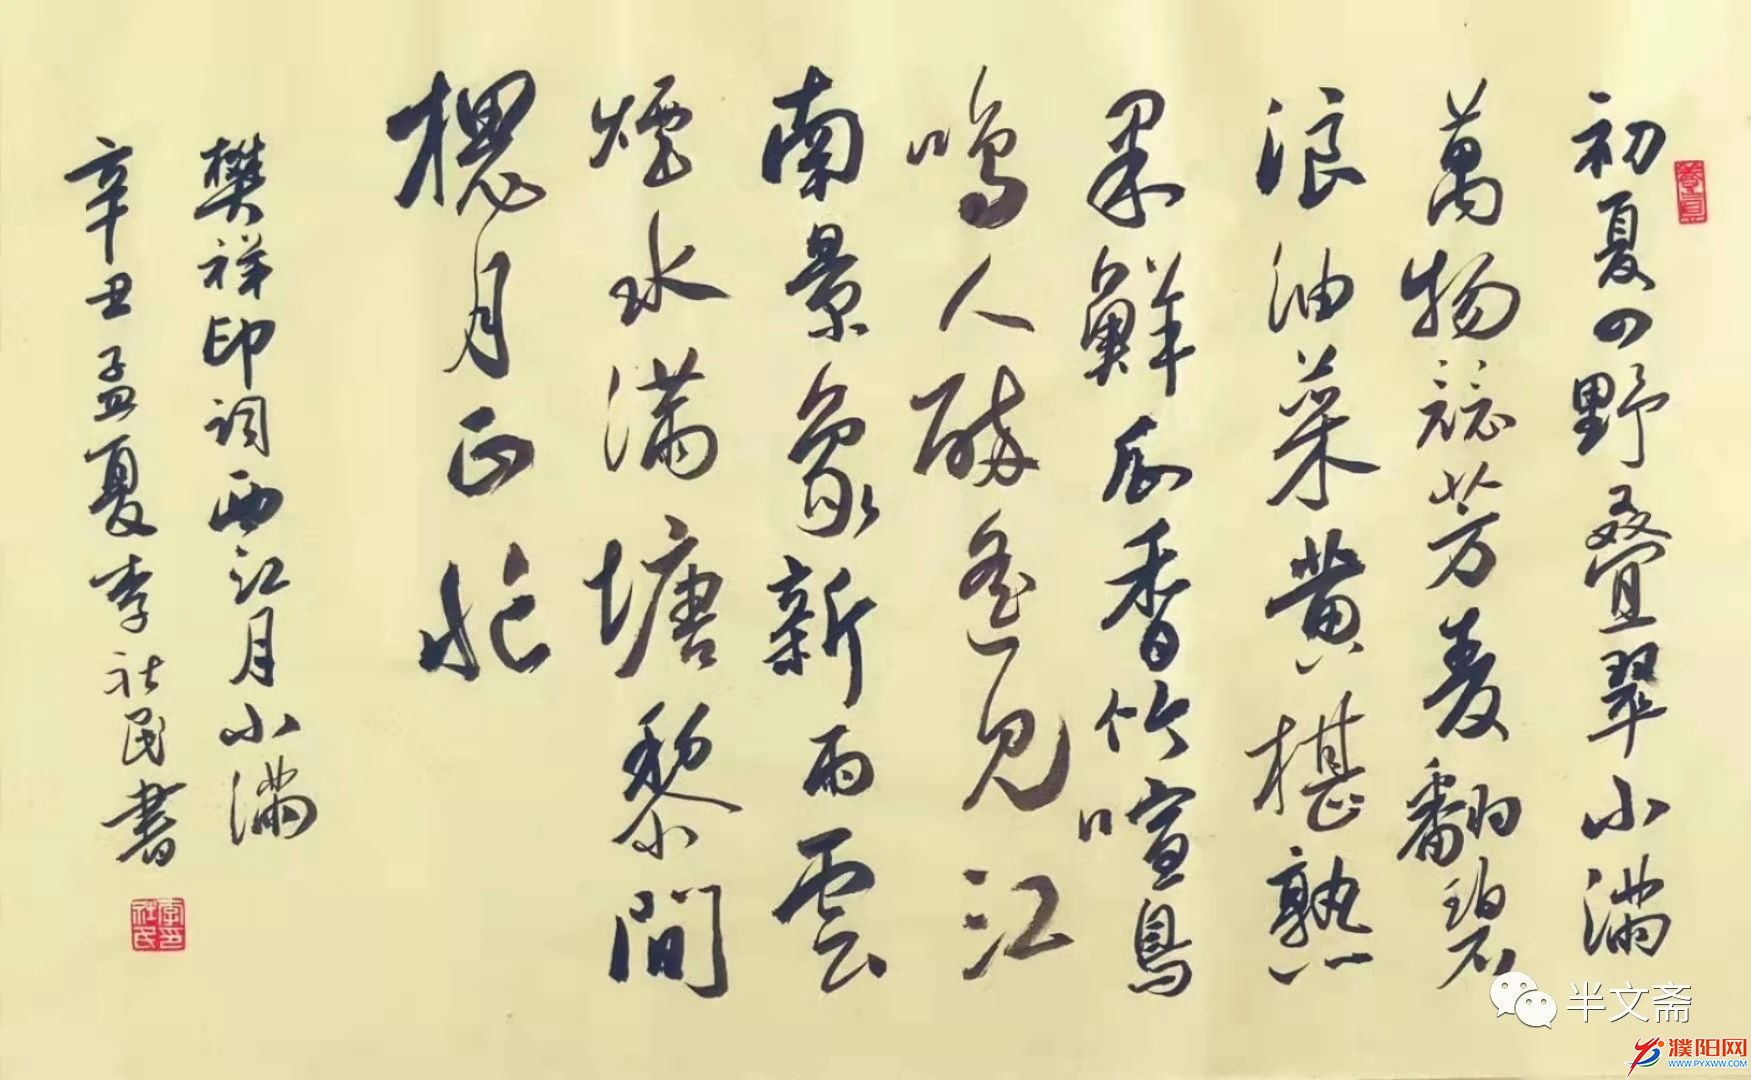 初夏四野叠翠小滿
萬物競芳麦翻碧
浪油菜黄椹熟
果鮮瓜香竹喧鳥
鳴人醉遥见江
南景象新雨雲
煙水满塘黎間
槐月正忙
樊祥印词西江月小滿
辛丑孟夏李社民書
李社民印
半文斋
濮阳网
WWW.PYXWW.COM